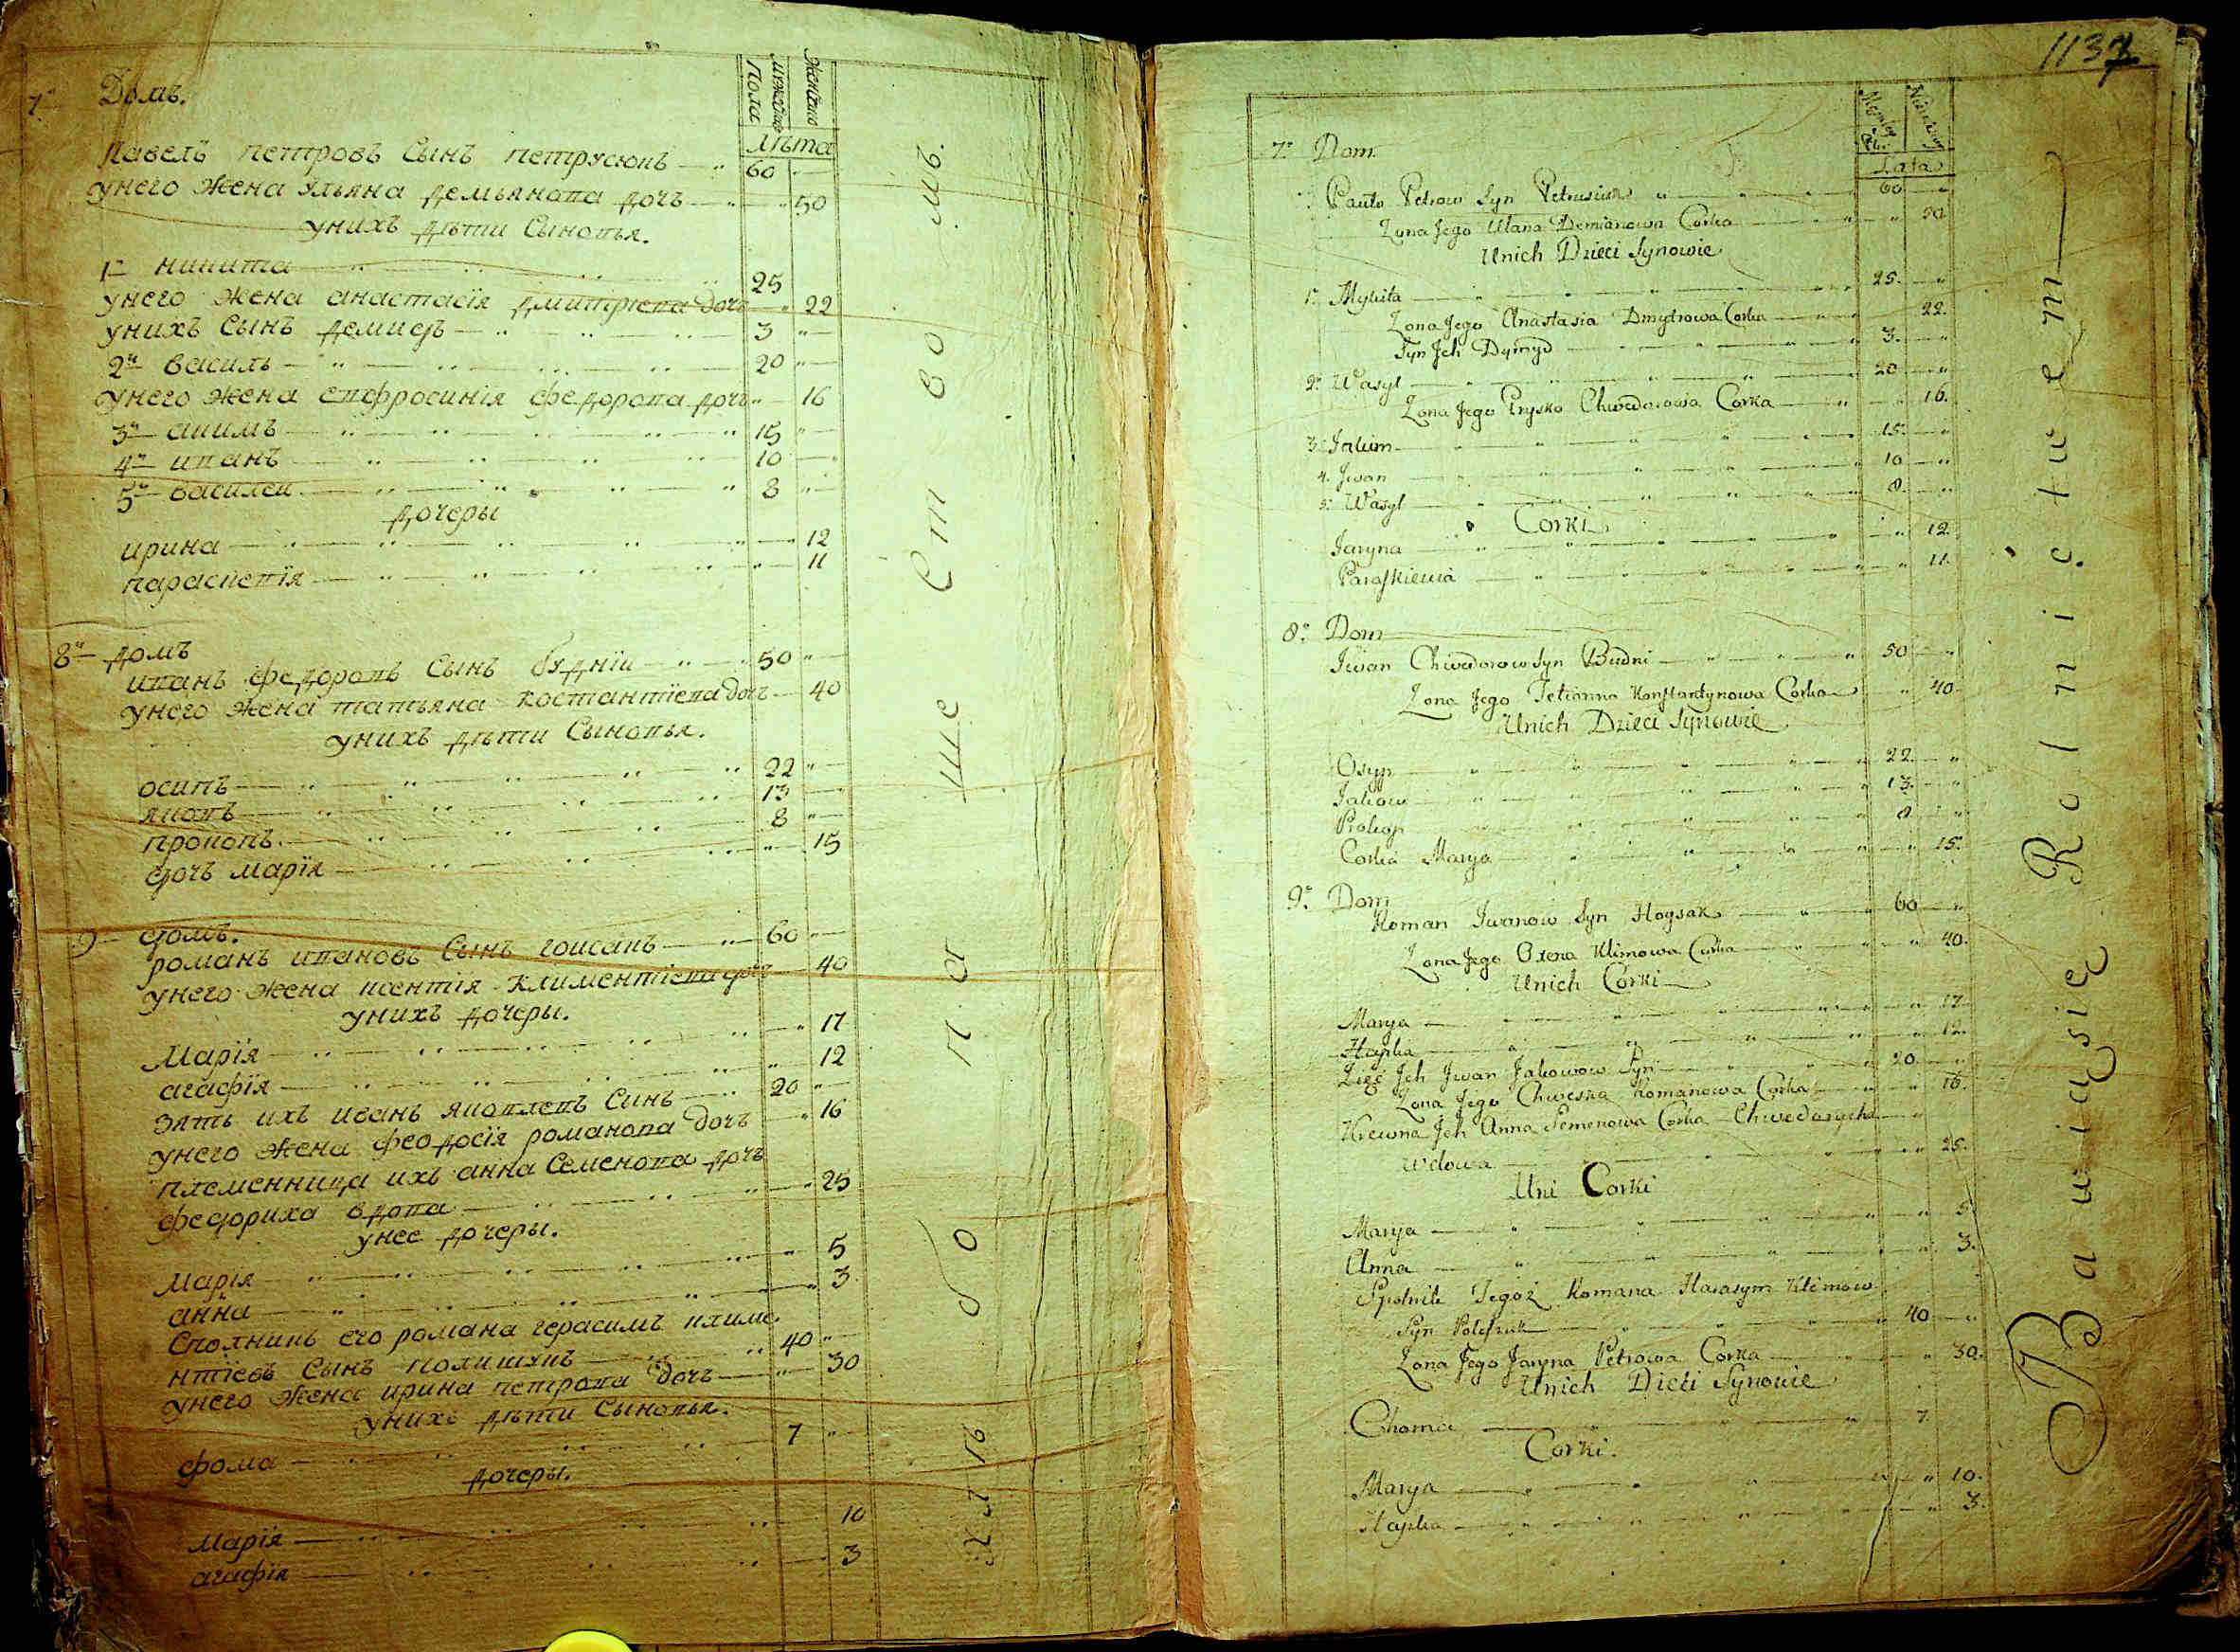 7. Домъ.
мужеска
Пола
Женска
Лѣта
Павелъ петровъ Сынъ петрусюкъ 60
унего Жена Ульяна демьянова дочъ 50
унихъ дѣти Сыновья.
1й никита 25
унего Жена анастасїя дмитрїева дочъ 22
унихъ Сынъ демидъ 3
2й василь 20
унего Жена евфросинїя федорова дочъ 16
3й акимъ 15
4й иванъ 10
5й василей 8
дочеры
ирина 12
параскевїя 11
8й домъ
иванъ федоровъ Сынъ будній 50
унего Жена татьяна костантїева дочъ 40
унихъ дѣти Сыновья.
осипъ 22
яковъ 13
прокопъ 8
дочъ марїя 15
9 домъ.
романъ ивановъ Сынъ гойсакъ 60
унего Жена ксентїя климентїева дочъ 40
унихъ дочеры.
Марїя 17
агафїя 12
зять ихъ иванъ яковлевъ Синъ 20
унего Жена феодосїя романова дочъ 16
племенница ихъ анна Семенова дочъ
федориха вдова 25
унее дочеры.
марїя 5
анна 3
Сполникъ его романа герасимъ климе
нтїевъ Сынъ полишукъ 40
унего Жена ирина петрова дочъ 30
унихъ дѣти Сыновья.
фома 7
дочеры.
марїя 10
агафїя 3
1137
7. Dom
Lata
Pawło Petrow Syn Petrusiuk 60
Zona Jego Ulana Demianowa Corka 50
Unich Dzieci Synowie
1. Mykita 25.
Zona Jego Anastasia Dmytrowa Corka 22.
Syn Jch Dymyd 3.
2. Wasyl 20
Zona Jego Pryska Chwedorowa Corka 16.
3. Jakim 15.
4. Jwan 10
5. Wasyl 8.
Corki
Jaryna 12.
Paraskiewia 11.
8. Dom
Jwan Chwedorow Syn Budni 50
Zona Jego Tetianna Konstantynowa Corka 40
Unich Dzieci Synowie
Osyp 22
Jakow 13.
Prokop 8
Corka Marya 15.
9. Dom
Roman Jwanow Syn Hoysak 60
Zona Jego Oxena Klimowa Corka 40.
Unich Corki
Marya 17
Hapka 12
Zięć Jch Jwan Jakowow Syn 20
Zona Jego Chweska Romanowa Corka 16.
Krewna Jch Anna Semenowa Corka Chwedorycha
Wdowa 25.
Uni Corki
Marya 5
Anna 3.
Spolnik Tegoż Romana Harasym Klimow
Syn Poliszuk 40
Zona Jego Jaryna Petrowa Corka 30.
Unich Dieci Synowie
Choma 7
Corki.
Marya 10.
Hapka 3.
Bawiący się Rolnictwem